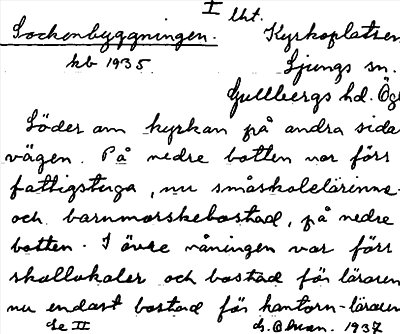 I lht.
Sockenbyggningen. Kyrkoplatsen
hb 1935. Ljungs sn.
Gullbergs hd. Ög
Söder om kyrkan på andra sida
vägen. På nedre botten var förr
fattigstuga, nu småskolelärinne-
och barnmorskebostad, på nedre
botten. I övre våningen var förr
skollokaler och bostad för läraren
nu endast bostad för kantorn-läraren
Se II 1937